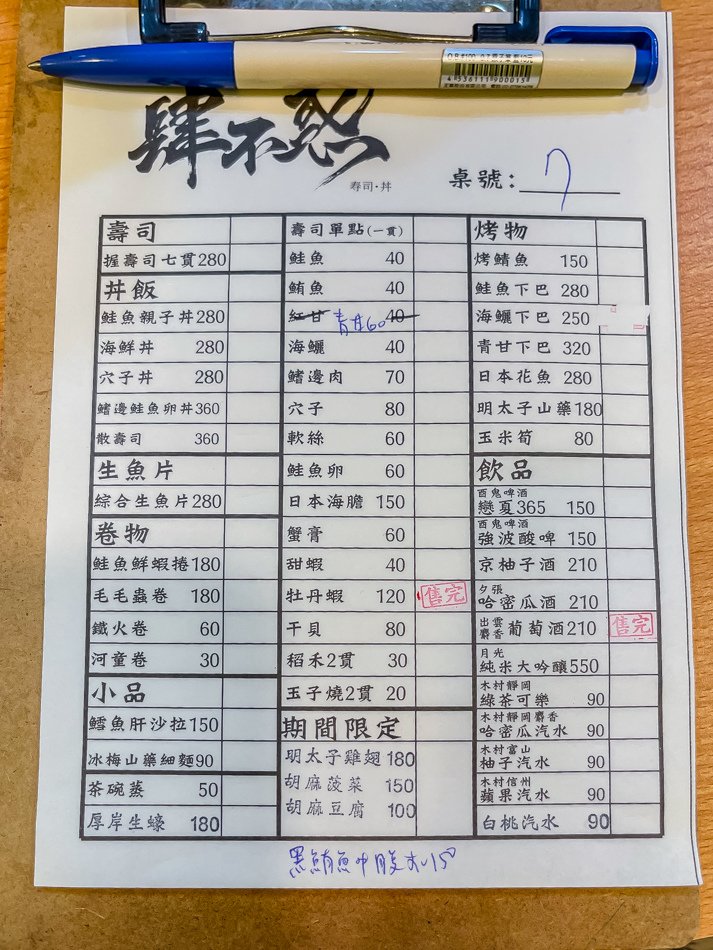 4 536111 900015
肆不惑
寿司·丼
桌號：7
壽司
握壽司七貫280
丼飯
鮭魚親子丼280
海鮮丼 280
穴子丼 280
鰭邊鮭魚卵丼360
散壽司 360
生魚片
綜合生魚片280
卷物
鮭魚鮮蝦捲180
毛毛蟲卷 180
鐵火卷 60
河童卷 30
小品
鱈魚肝沙拉150
冰梅山藥細麵90
茶碗蒸 50
厚岸生蠔 180
壽司單點(一貫)
鮭魚 40
鮪魚 40
紅甘 40 青甘60
海鱺 40
鰭邊肉 70
穴子 80
軟絲 60
鮭魚卵 60
日本海膽 150
蟹膏 60
甜蝦 40
牡丹蝦 120 售完
干貝 80
稻禾2貫 30
玉子燒2貫 20
期間限定
明太子雞翅180
胡麻菠菜 150
胡麻豆腐 100
烤物
烤鯖魚 150
鮭魚下巴 280
海鱺下巴 250
青甘下巴 320
日本花魚 280
明太子山藥180
玉米筍 80
飲品
百鬼啤酒
戀夏365 150
百鬼啤酒
強波酸啤 150
京柚子酒 210
夕張
哈密瓜酒 210
出雲
麝香 葡萄酒210 售完
月光
純米大吟釀550
木村靜岡
綠茶可樂 90
木村靜岡麝香
哈密瓜汽水 90
木村富山
柚子汽水 90
木村信州
蘋果汽水 90
白桃汽水 90
黑鮪魚中腹